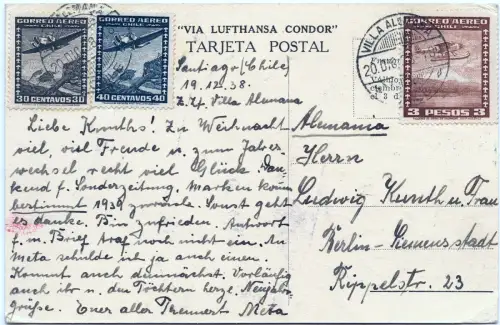 CORREO AEREO
CHILE
30 CENTAVOS 30
CORREO AEREO
CHILE
40 CENTAVOS 40
"VIA LUFTHANSA CONDOR"
TARJETA POSTAL
VILLA
CORREO AEREO
CHILE
3 PESOS 3
Santiago (Chile)
19.12.38.
z. Zt. Villa Alemana
Liebe Kunths! Zu Weihnacht
viel, viel Freude u. zum Jahres
wechsel recht viel Glück. Dan-
kend f. Sonderzeitung. Marken komm
bestimmt 1939 zurück. Sonst geht
es danke. Bin zufrieden. Antwort
f. m. Brief traf noch nicht ein. An
Meta schulde ich ja auch einen.
Kommt auch demnächst. Vorläufig
auch ihr u. den Töchtern herzl. Neujahrs-
grüße. Euer aller Meta
Alemania
Herrn
Ludwig Kunth u. Frau
Berlin-Siemensstadt
Rippelstr. 23